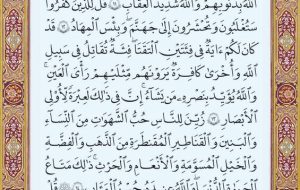 ٱللَّهُ بِذُنُوبِهِمْ وَٱللَّهُ شَدِيدُ ٱلْعِقَابِ ١١ قُل لِّلَّذِينَ كَفَرُوا۟
سَتُغْلَبُونَ وَتُحْشَرُونَ إِلَىٰ جَهَنَّمَ وَبِئْسَ ٱلْمِهَادُ ١٢ قَدْ
كَانَ لَكُمْ ءَايَةٌ فِى فِئَتَيْنِ ٱلْتَقَتَا فِئَةٌ تُقَٰتِلُ فِى سَبِيلِ
ٱللَّهِ وَأُخْرَىٰ كَافِرَةٌ يَرَوْنَهُم مِّثْلَيْهِمْ رَأْىَ ٱلْعَيْنِ
وَٱللَّهُ يُؤَيِّدُ بِنَصْرِهِۦ مَن يَشَآءُ إِنَّ فِى ذَٰلِكَ لَعِبْرَةً لِّأُو۟لِى
ٱلْأَبْصَٰرِ ١٣ زُيِّنَ لِلنَّاسِ حُبُّ ٱلشَّهَوَٰتِ مِنَ ٱلنِّسَآءِ
وَٱلْبَنِينَ وَٱلْقَنَٰطِيرِ ٱلْمُقَنطَرَةِ مِنَ ٱلذَّهَبِ وَٱلْفِضَّةِ
وَٱلْخَيْلِ ٱلْمُسَوَّمَةِ وَٱلْأَنْعَٰمِ وَٱلْحَرْثِ ذَٰلِكَ مَتَٰعُ